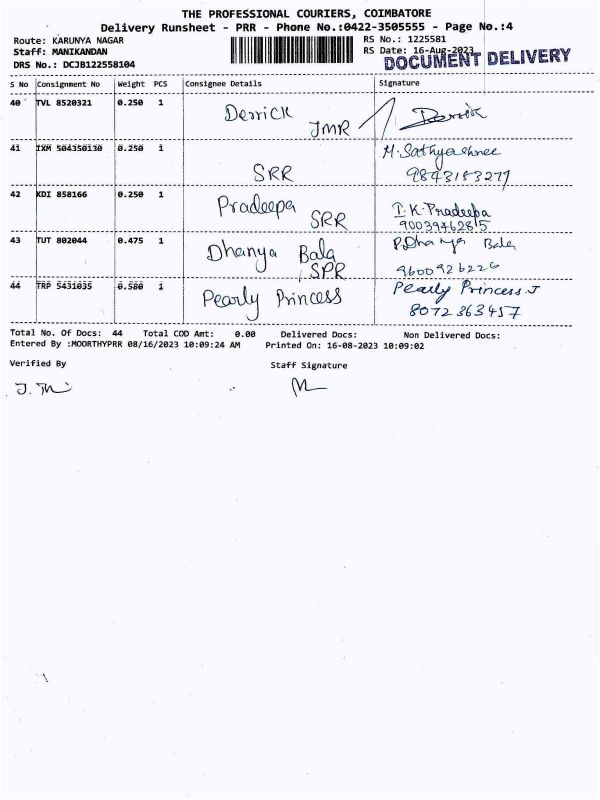 THE PROFESSIONAL COURIERS, COIMBATORE
Delivery Runsheet - PRR - Phone No.:0422-3505555 - Page No.:4
Route: KARUNYA NAGAR
RS No.: 1225581
Staff: MANIKANDAN
RS Date: 16-Aug-2023
DRS No.: DCJB122558104
DOCUMENT DELIVERY
S No Consignment No Weight PCS Consignee Details Signature
40 TVL 8520321 0.250 1 Derrick JMR Derrick
41 IXM 504350130 0.250 1 SRR M. Sathyashree
9843183277
42 KDI 858166 0.250 1 Pradeepa SRR I.K.Pradeeba
90039462815
43 TUT 802044 0.475 1 Dhanya Bala SPR P.Dhanya Bala
9600926226
44 TRP 5431035 0.580 1 Pearly Princess Pearly Princess J
8072363457
Total No. Of Docs: 44 Total COD Amt: 0.00 Delivered Docs: Non Delivered Docs:
Entered By :MOORTHYPRR 08/16/2023 10:09:24 AM Printed On: 16-08-2023 10:09:02
Verified By Staff Signature